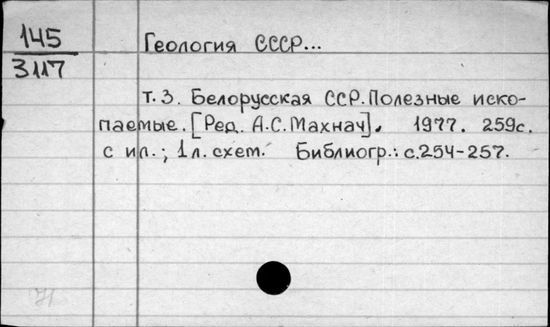 145
3117
Геология СССР...
т. 3. Белорусская ССР. Полезные иско-
паемые. [Ред. А.С. Махнач]. 1977. 259с.
с ил.; 1 л. схем. Библиогр.: с.254-257.